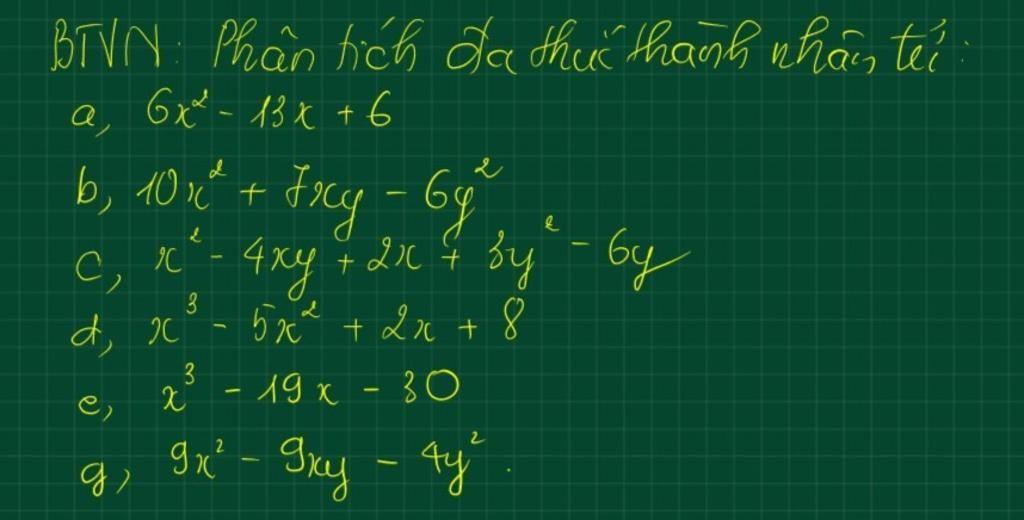 BTVN: Phân tích đa thức thành nhân tử:
a, 6x² - 13x + 6
b, 10x² + 7xy - 6y²
c, x² - 4xy + 2x + 3y² - 6y
d, x³ - 5x² + 2x + 8
e, x³ - 19x - 30
g, 9x² - 9xy - 4y².